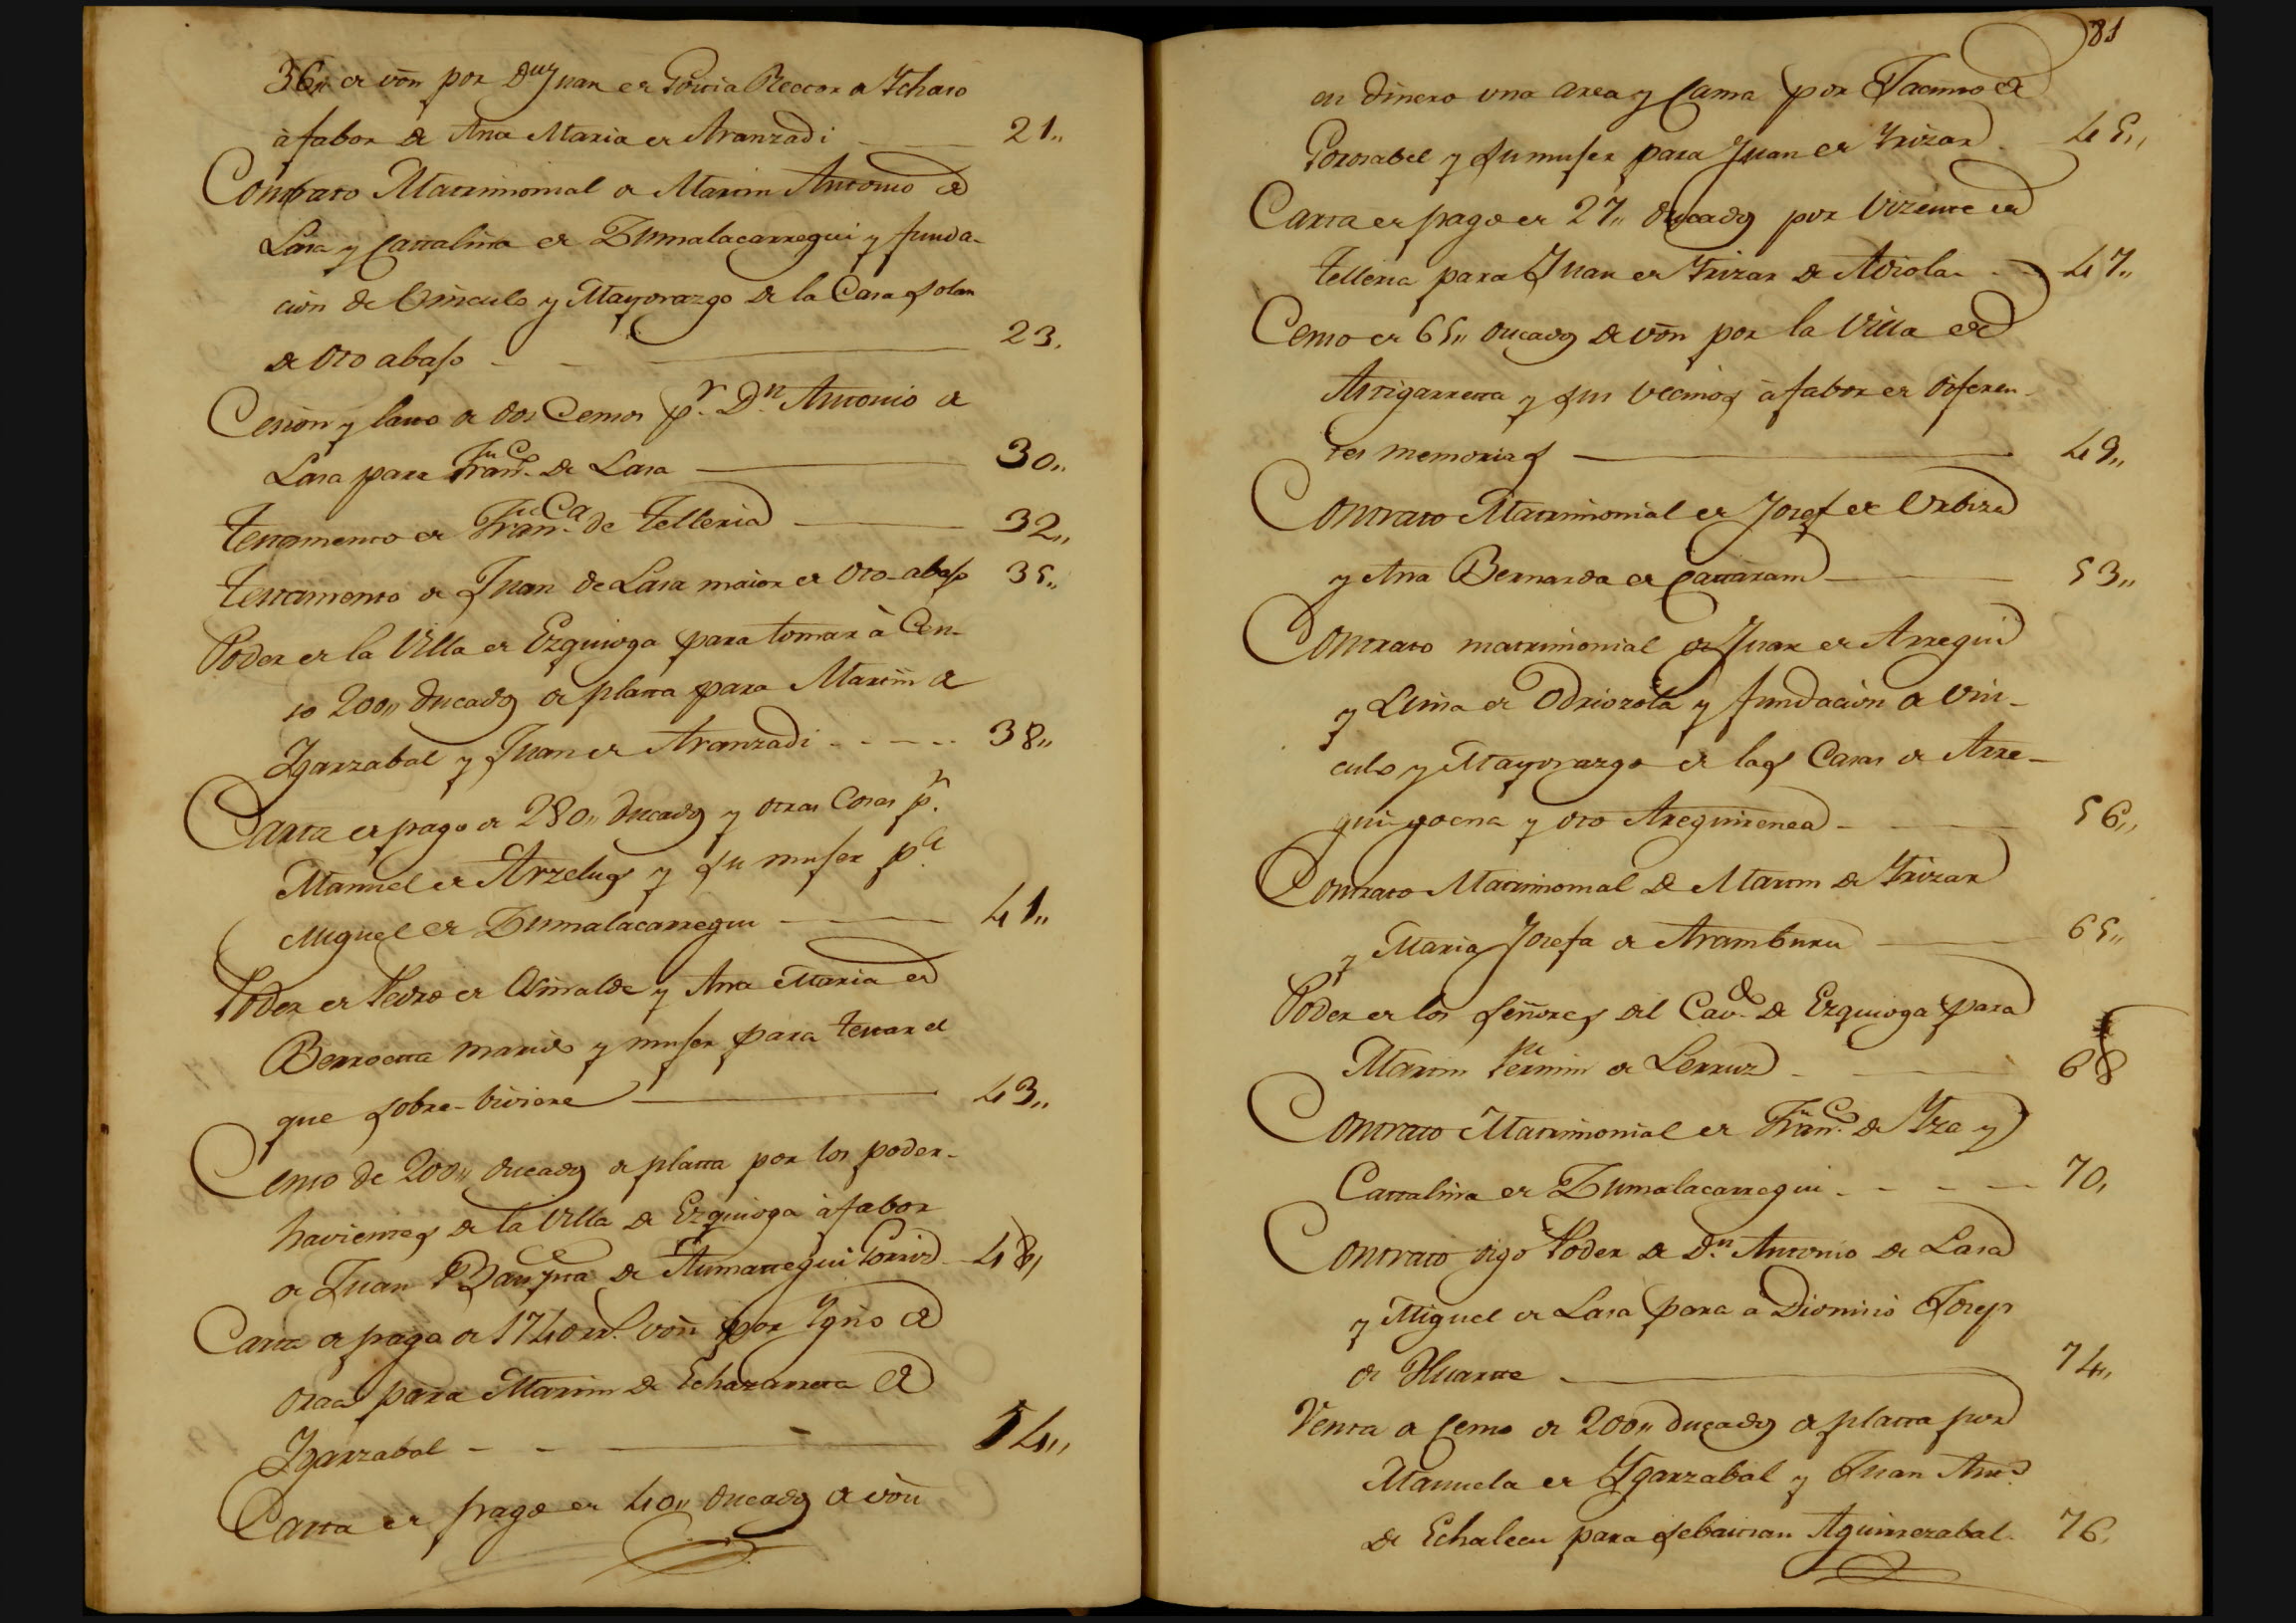 de von por Dn Juan de Goiria Rector de Ychaso
à fabor de Ana Maria de Aranzadi 21,,
Contrato Matrimonial de Martin Antonio de
Lasa y Cattalina de Zumalacarregui y funda-
cion de Vinculo y Mayorazgo de la Casa solar
de Oro abajo 23,
Cesion y lasto de dos Censos pr. Dn. Antonio de
Lasa para Franco. de Lasa 30,,
Testamento de Franca. de Telleria 32,,
Testamento de Juan de Lasa maior de Oro-abajo 35,,
Poder de la Villa de Ezquioga para tomar à Cen-
so 200,, ducados de platta para Martin de
Ygarzabal y Juan de Aranzadi 38,,
Carta de pago de 280,, ducados y otras Cosas pr.
Manuel de Arzelus y su mujer pa.
Miguel de Zumalacarregui 41,,
Poder de Pedro de Asinalde y Ana Maria de
Berroetta marido y mujer para testar el
que sobre-biviere 43,,
Censo de 200,, ducados de platta por los poder-
havientes de la Villa de Ezquioga à fabor
de Juan Bauptta de Aumattegui
Carta de pago de 1740 rrs. von por Ygnº de
Oraa para Martin de Echazarreta de
Ygarzabal 54,,
Carta de pago de 40,, ducados de von
81
en dinero una arca y Cama por Jacinto de
Gorosabel y su mujer para Juan de Yrizar 45,,
Carta de pago de 27,, ducados por Vizente de
Telleria para Juan de Yrizar de Adiola 47,,
Censo de 65,, ducados de von por la Villa de
Astigarreta y sus vecinos à fabor de diferen-
tes memorias 49,,
Contrato Matrimonial de Josef de Urbiza
y Ana Bernarda de Cattarain 53,,
Contrato matrimonial de Juan de Arregui
y Luisa de Odriozola y fundacion de Vin-
culo y Mayorazgo de las Casas de Arre-
gui-goena y oro Areguirenea 56,,
Contrato Matrimonial de Martin de Yrizar
y Maria Josefa de Aramburu 65,,
Poder de los señores del Cavdo. de Ezquioga para
Martin Fermin de Lerruz 68
Contrato Matrimonial de Franco. de Yza y
Cattalina de Zumalacarregui 70,
Contrato digo Poder de Dn. Antonio de Lasa
y Miguel de Lasa para a Dionisio Josep
de Huarte 74,,
Venta de Censo de 200,, ducados de platta por
Manuela de Ygarzabal y Juan Anto.
de Echalecu para Sebastian Aguirrezabal 76,